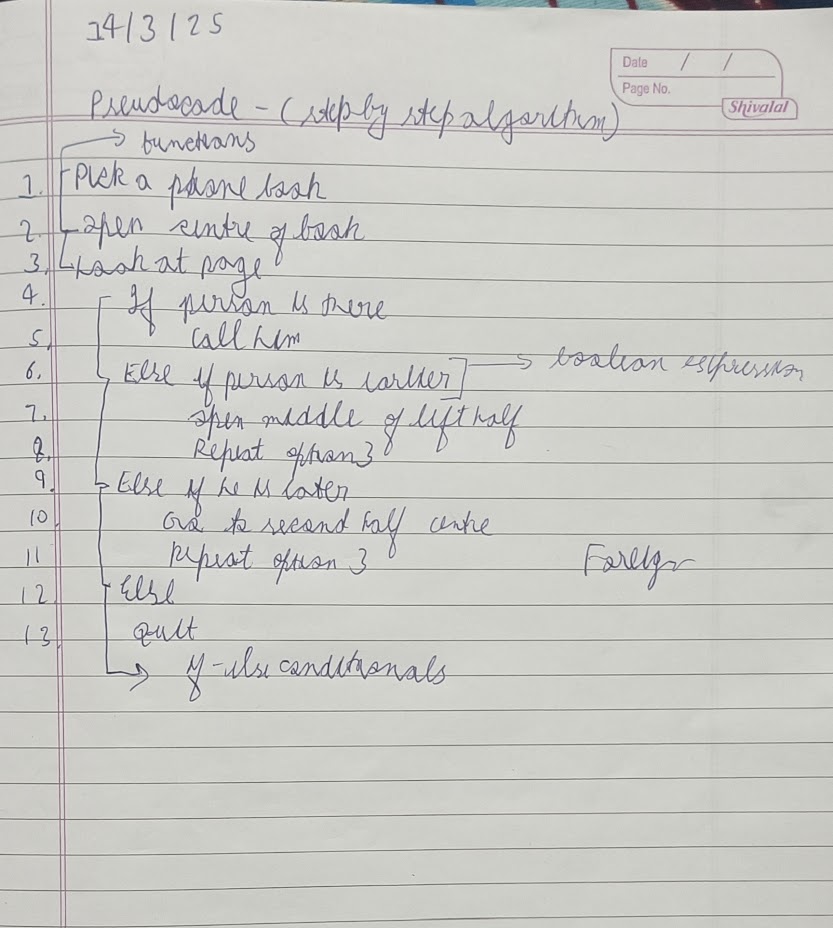 14/3/25
Date / /
Page No.
Shivalal
Pseudocode - (step by step algorithm)
→ functions
1. Pick a phone book
2. open centre of book
3. Look at page
4. If person is there
5. call him
6. Else if person is earlier] → boolean expression
7. open middle of left half
8. Repeat option 3
9. Else if he is later
10 Go to second half centre
11 repeat option 3 Foreign
12 Else
13 quit
→ if-else conditionals